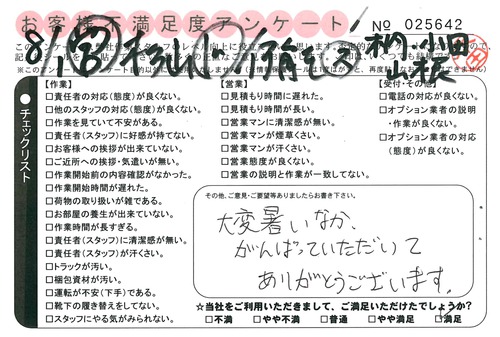 お客様不満足度アンケート
No 025642
チェックリスト
【作業】
□責任者の対応(態度)が良くない。
□他のスタッフの対応(態度)が良くない。
□作業を見ていて不安がある。
□責任者(スタッフ)に好感が持てない。
□お客様への挨拶が出来ていない。
□ご近所への挨拶・気遣いが無い。
□作業開始前の内容確認がなかった。
□作業開始時間が遅れた。
□荷物の取り扱いが雑である。
□お部屋の養生が出来ていない。
□作業時間が長すぎる。
□責任者(スタッフ)に清潔感が無い。
□責任者(スタッフ)が汗くさい。
□トラックが汚い。
□梱包資材が汚い。
□運転が不安(下手)である。
□靴下の履き替えをしてない。
□スタッフにやる気がみられない。
【営業】
□見積もり時間に遅れた。
□見積もり時間が長い。
□営業マンに清潔感が無い。
□営業マンが煙草くさい。
□営業マンが汗くさい。
□営業態度が良くない。
□営業の説明と作業が一致してない。
【受付・その他】
□電話の対応が良くない。
□オプション業者の説明
・作業が良くない。
□オプション業者の対応
(態度)が良くない。
その他、ご意見・ご要望等ありましたらお書き下さい。
大変暑いなか、
がんばっていただいて
ありがとうございます。
☆当社をご利用いただきまして、ご満足いただけたでしょうか?
□不満 □やや不満 □普通 □やや満足 □満足